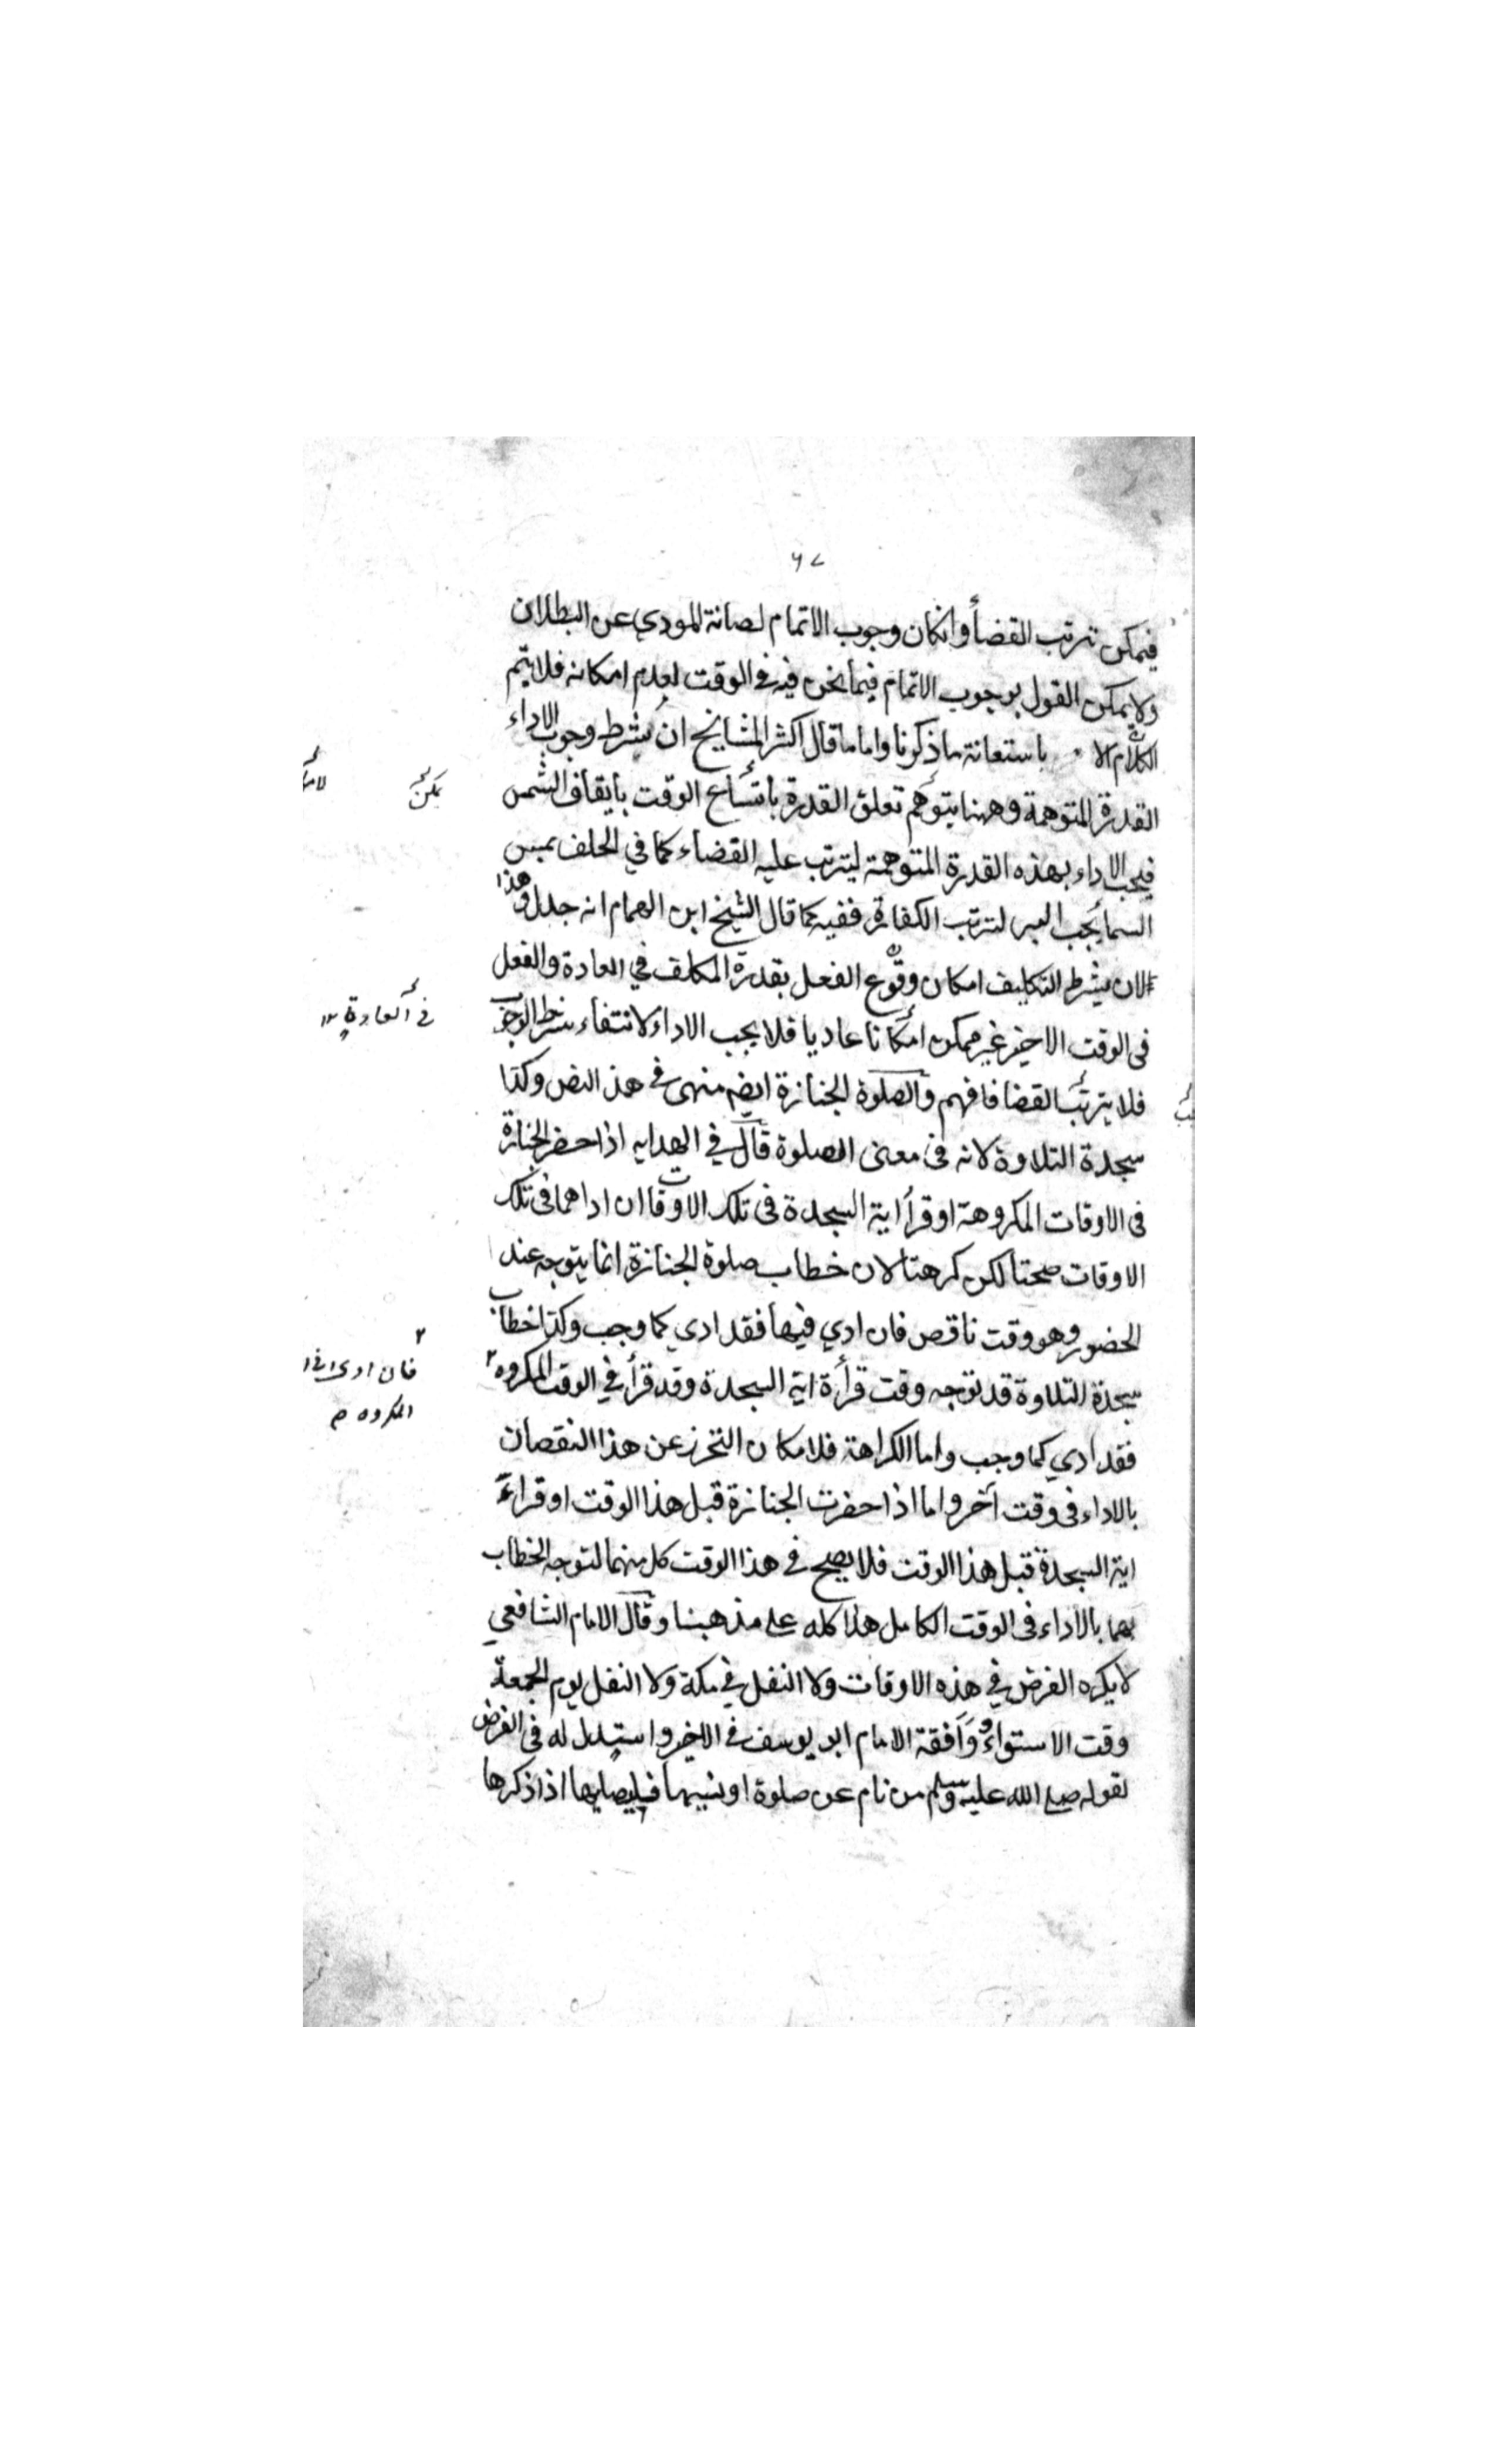 ٦٧
فيمكن ترتب القضأ وانكان وجوب الاتمام لصيانة المودي عن البطلان
ولا يمكن القول بوجوب الاتمام فيما نحن فيه في الوقت لعدم امكانه فلا يتم
الكلام الا باستعانة ما ذكرنا واما ما قال اكثر المشايخ ان شرط وجوب الاداء
القدرة المتوهمة وههنا يتوهم تعلق القدرة باتساع الوقت بايقاف الشمس
فيجب الاداء بهذه القدرة المتوهمة ليترتب عليه القضاء كما في الحلف بمس
السما يجب البر لترتب الكفارة ففيه كما قال الشيخ ابن الهمام انه جدل وهذا
لان شرط التكليف امكان وقوع الفعل بقدرة المكلف في العادة والفعل
فى الوقت الاخير غير ممكن امكانا عاديا فلا يجب الاداء لانتفاء شرط الوجوب
فلا يترتب القضا فافهم والصلوة الجنازة ايضا منهى في هذ النص وكذا
سجدة التلاوة لانه فى معنى الصلوة قال في الهدايه اذا حضر الجنازة
فى الاوقات المكروهة او قرأ اية السجدة فى تلك الاوقات ان اداهما فى تلك
الاوقات صحتا لكن كرهتا لان خطاب صلوة الجنازة انما يتوجه عند
الحضور وهو وقت ناقص فان ادي فيها فقد ادي كما وجب وكذا خطاب
سجدة التلاوة قد توجه وقت قرأة اية السجدة وقد قرأ في الوقت المكروه
فقد ادي كما وجب واما الكراهة فلامكان التحرز عن هذا النقصان
بالاداء فى وقت آخر واما اذا حضرت الجنازة قبل هذا الوقت او قراء
اية السجدة قبل هذا الوقت فلا يصح في هذا الوقت كل منهما لتوجه الخطاب
بهما بالاداء فى الوقت الكامل هذا كله على مذهبنا وقال الامام الشافعي
لا يكره الفرض في هذه الاوقات ولا النفل في مكة ولا النفل يوم الجمعة
وقت الاستواء ووافقه الامام ابو يوسف في الاخير واستدل له فى الفرض
لقوله صلى الله عليه وسلم من نام عن صلوة او نسيها فليصليها اذا ذكرها
يمكن
في العادة ١٢
فان ادى في
المكروه م